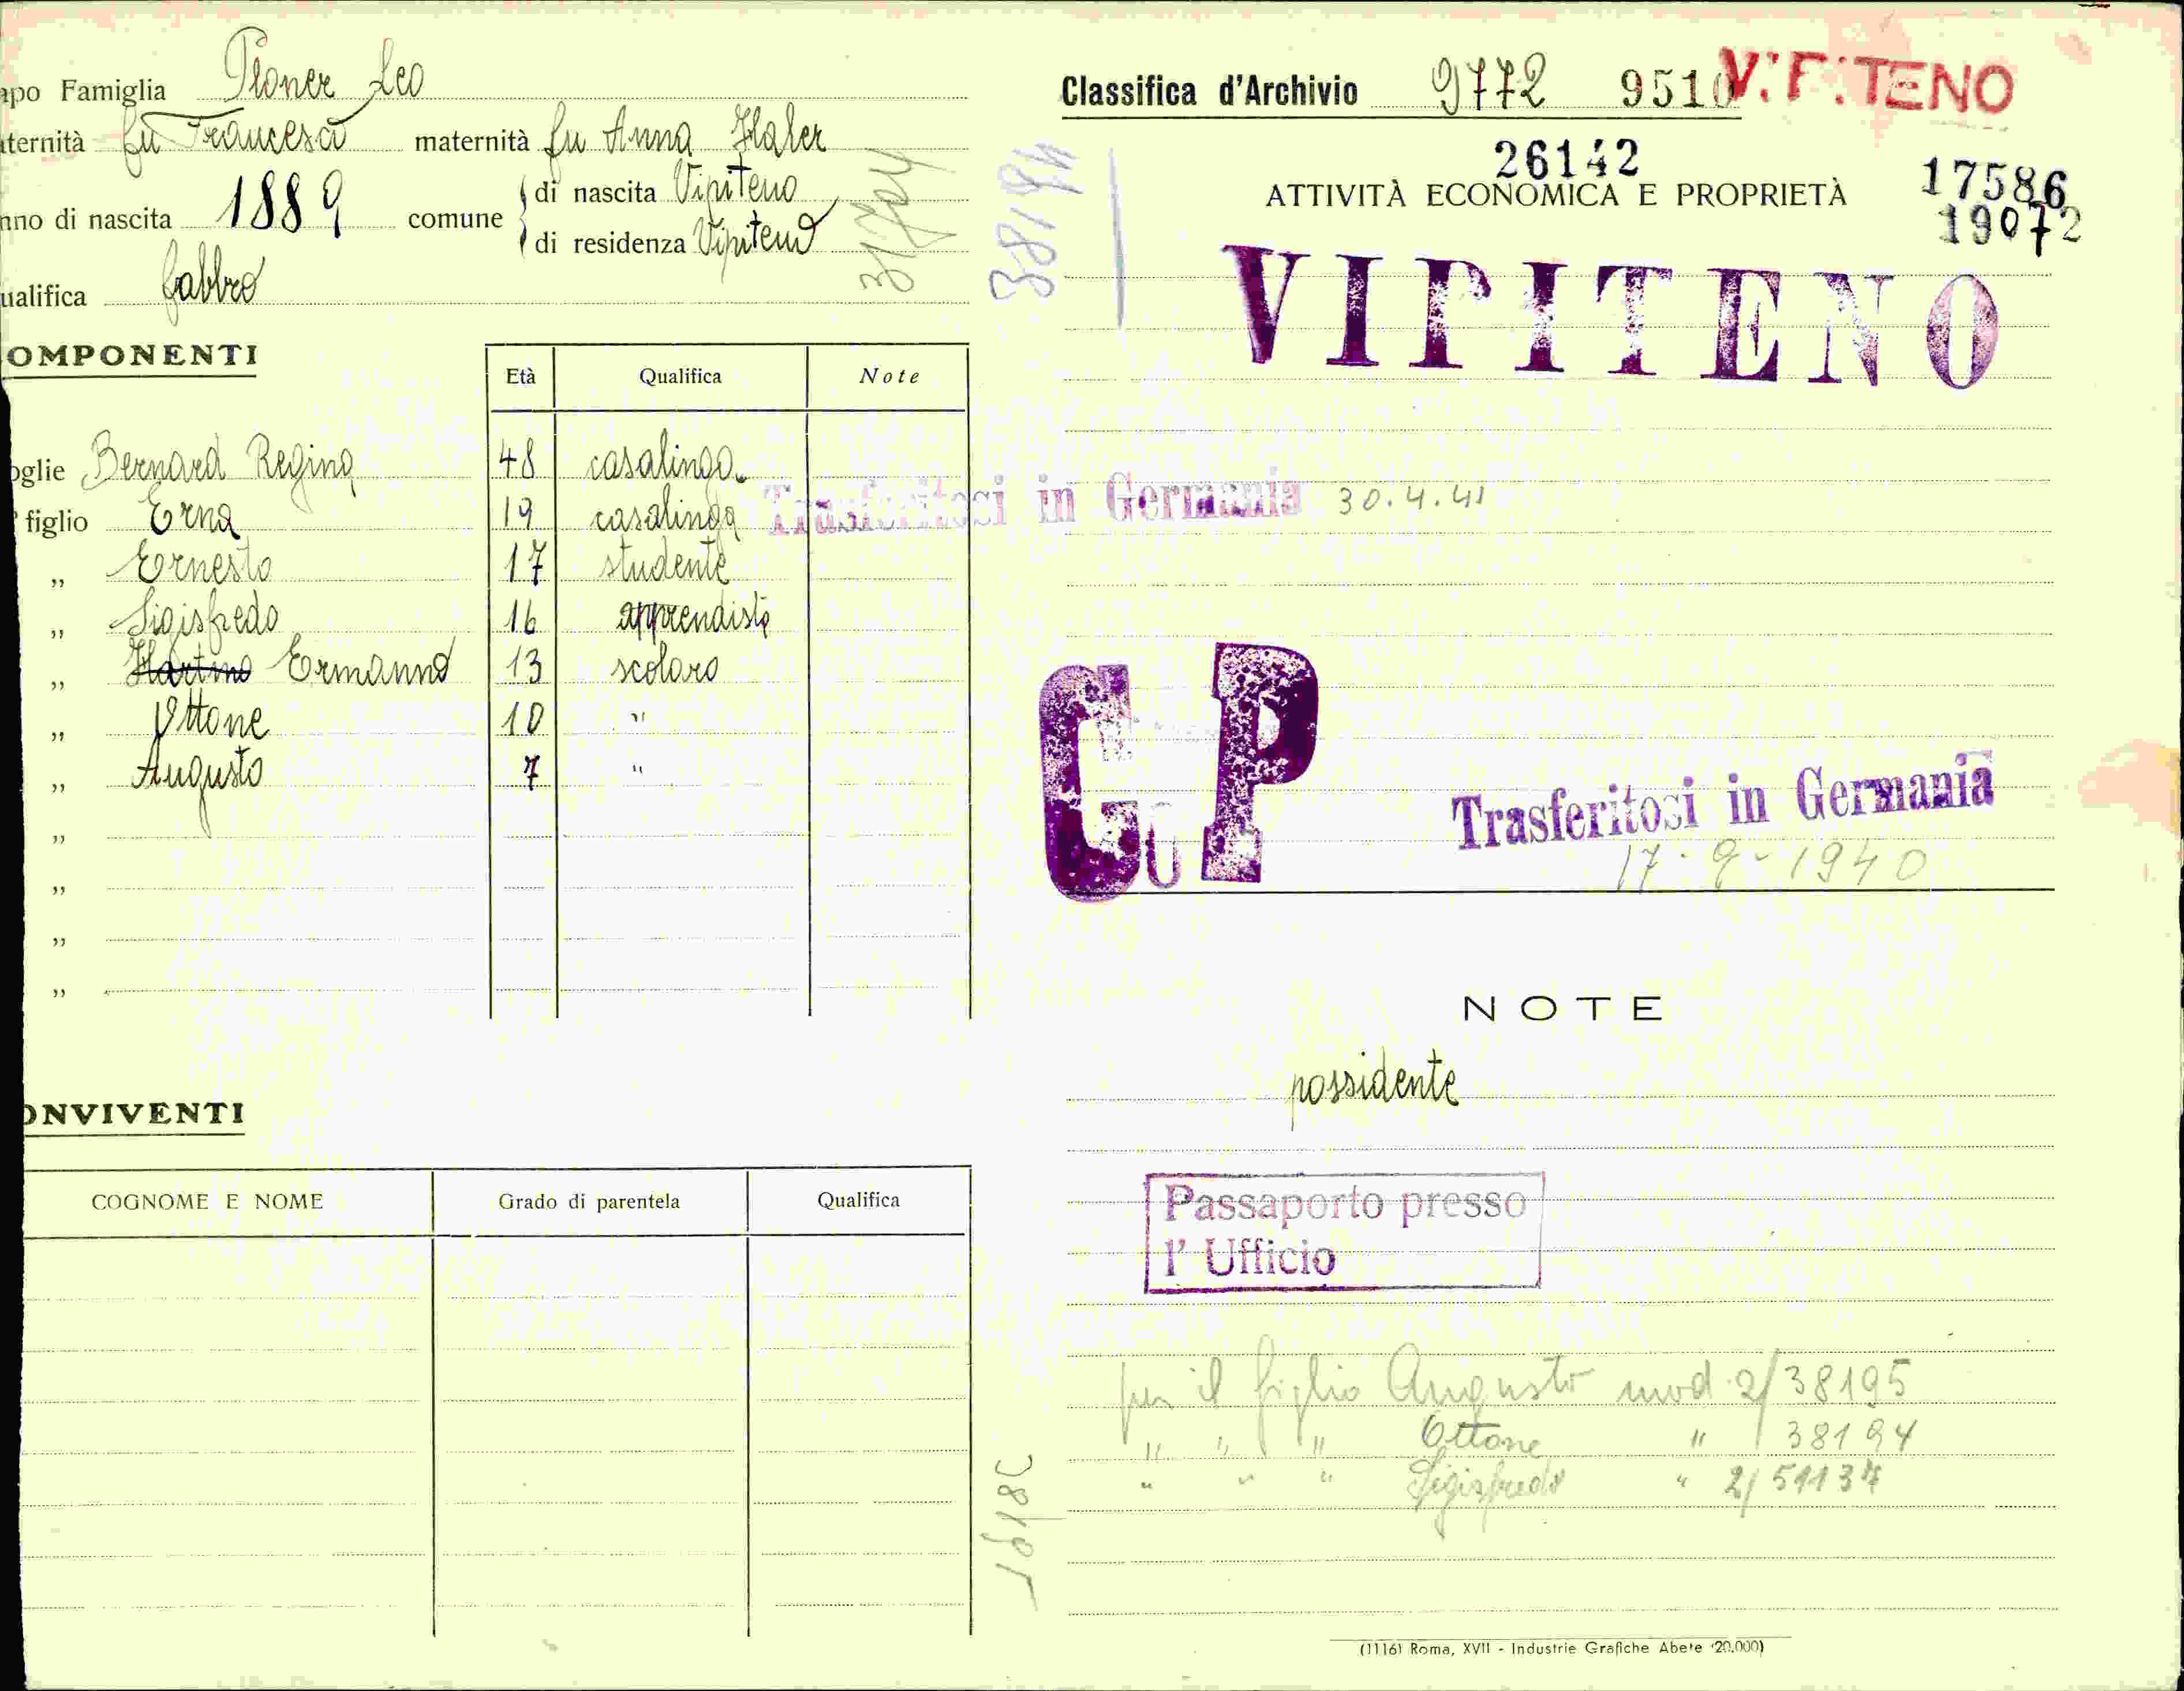 apo Famiglia Ploner Leo
aternità fu Francesco maternità fu Anna Haler
nno di nascita 1889 comune di nascita Vipiteno
di residenza Vipiteno
ualifica fabbro
OMPONENTI
Età Qualifica Note
oglie Bernard Regina 48 casalinga
figlio Erna 19 casalinga
„ Ernesto 17 studente
„ Sigisfredo 16 apprendista
„ Martino Ermanno 13 scolaro
„ Ottone 10 "
„ Augusto 7 "
„
„
„
„
ONVIVENTI
COGNOME E NOME Grado di parentela Qualifica
38194
Classifica d'Archivio 9772 9510 VIPITENO
26142
ATTIVITÀ ECONOMICA E PROPRIETÀ 17586
19072
VIPITENO
Trasferitosi in Germania 30.4.41
G P
Trasferitosi in Germania
17-9-1940
NOTE
possidente
Passaporto presso
l' Ufficio
per il figlio Augusto mod. 2/38195
" " " Ottone " / 38194
" " " Sigisfredo " 2/51137
(1116) Roma, XVII - Industrie Grafiche Abete (20.000)